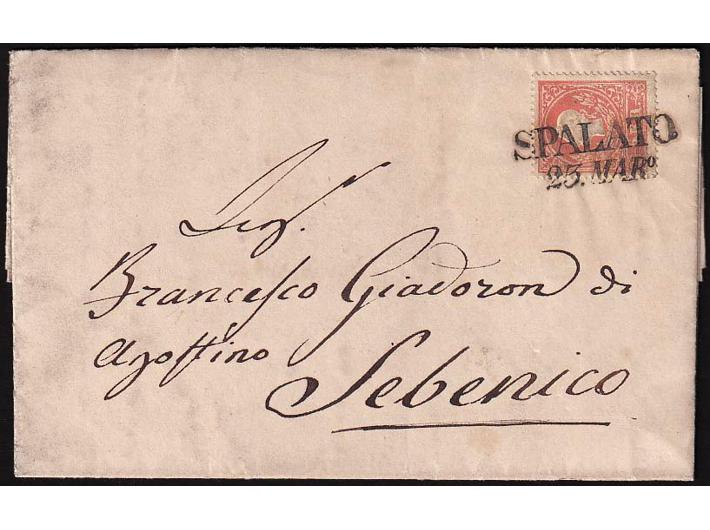 SPALATO
23. MARº
Sigr.
Francesco Giadoron di
Agostino
Sebenico